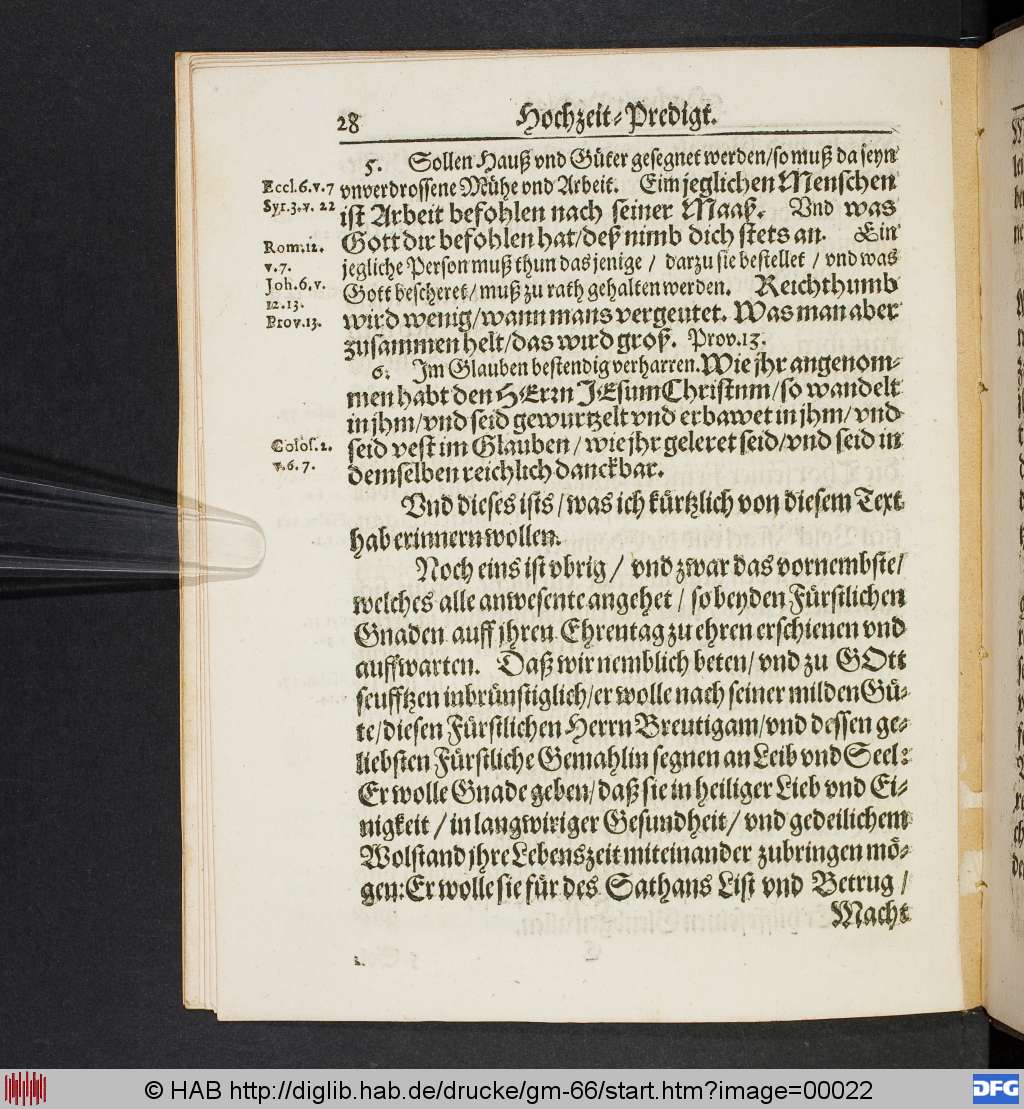 28 Hochzeit-Predigt.
5. Sollen Hauß vnd Güter gesegnet werden/so muß da seyn
Eccl.6.v.7 vnverdrossene Mühe vnd Arbeit. Eim jeglichen Menschen
Syr.3.v.22 ist Arbeit befohlen nach seiner Maaß. Vnd was
Rom.12. Gott dir befohlen hat/deß nimb dich stets an. Ein
v.7. jegliche Person muß thun das jenige / darzu sie bestellet / vnd was
Joh.6.v. Gott bescheret/muß zu rath gehalten werden. Reichthumb
12.13.
Prov.13. wird wenig/wann mans vergeutet. Was man aber
zusammen helt/das wird groß. Prov.13.
6. Im Glauben bestendig verharren. Wie jhr angenom-
men habt den HErrn JEsum Christum/so wandelt
in jhm/vnd seid gewurtzelt vnd erbawet in jhm/vnd
Colos.2. seid vest im Glauben/wie jhr geleret seid/vnd seid in
v.6.7. demselben reichlich danckbar.
Vnd dieses ists/was ich kürtzlich von diesem Text
hab erinnern wollen.
Noch eins ist vbrig / vnd zwar das vornembste/
welches alle anwesente angehet / so beyden Fürstlichen
Gnaden auff jhren Ehrentag zu ehren erschienen vnd
auffwarten. Daß wir nemblich beten/vnd zu GOtt
seufftzen inbrünstiglich/er wolle nach seiner milden Gü-
te/diesen Fürstlichen Herrn Breutigam/vnd dessen ge-
liebsten Fürstliche Gemahlin segnen an Leib vnd Seel:
Er wolle Gnade geben/daß sie in heiliger Lieb vnd Ei-
nigkeit / in langwiriger Gesundheit/ vnd gedeilichem
Wolstand jhre Lebenszeit miteinander zubringen mö-
gen: Er wolle sie für des Sathans List vnd Betrug /
Macht
© HAB http://diglib.hab.de/drucke/gm-66/start.htm?image=00022
DFG